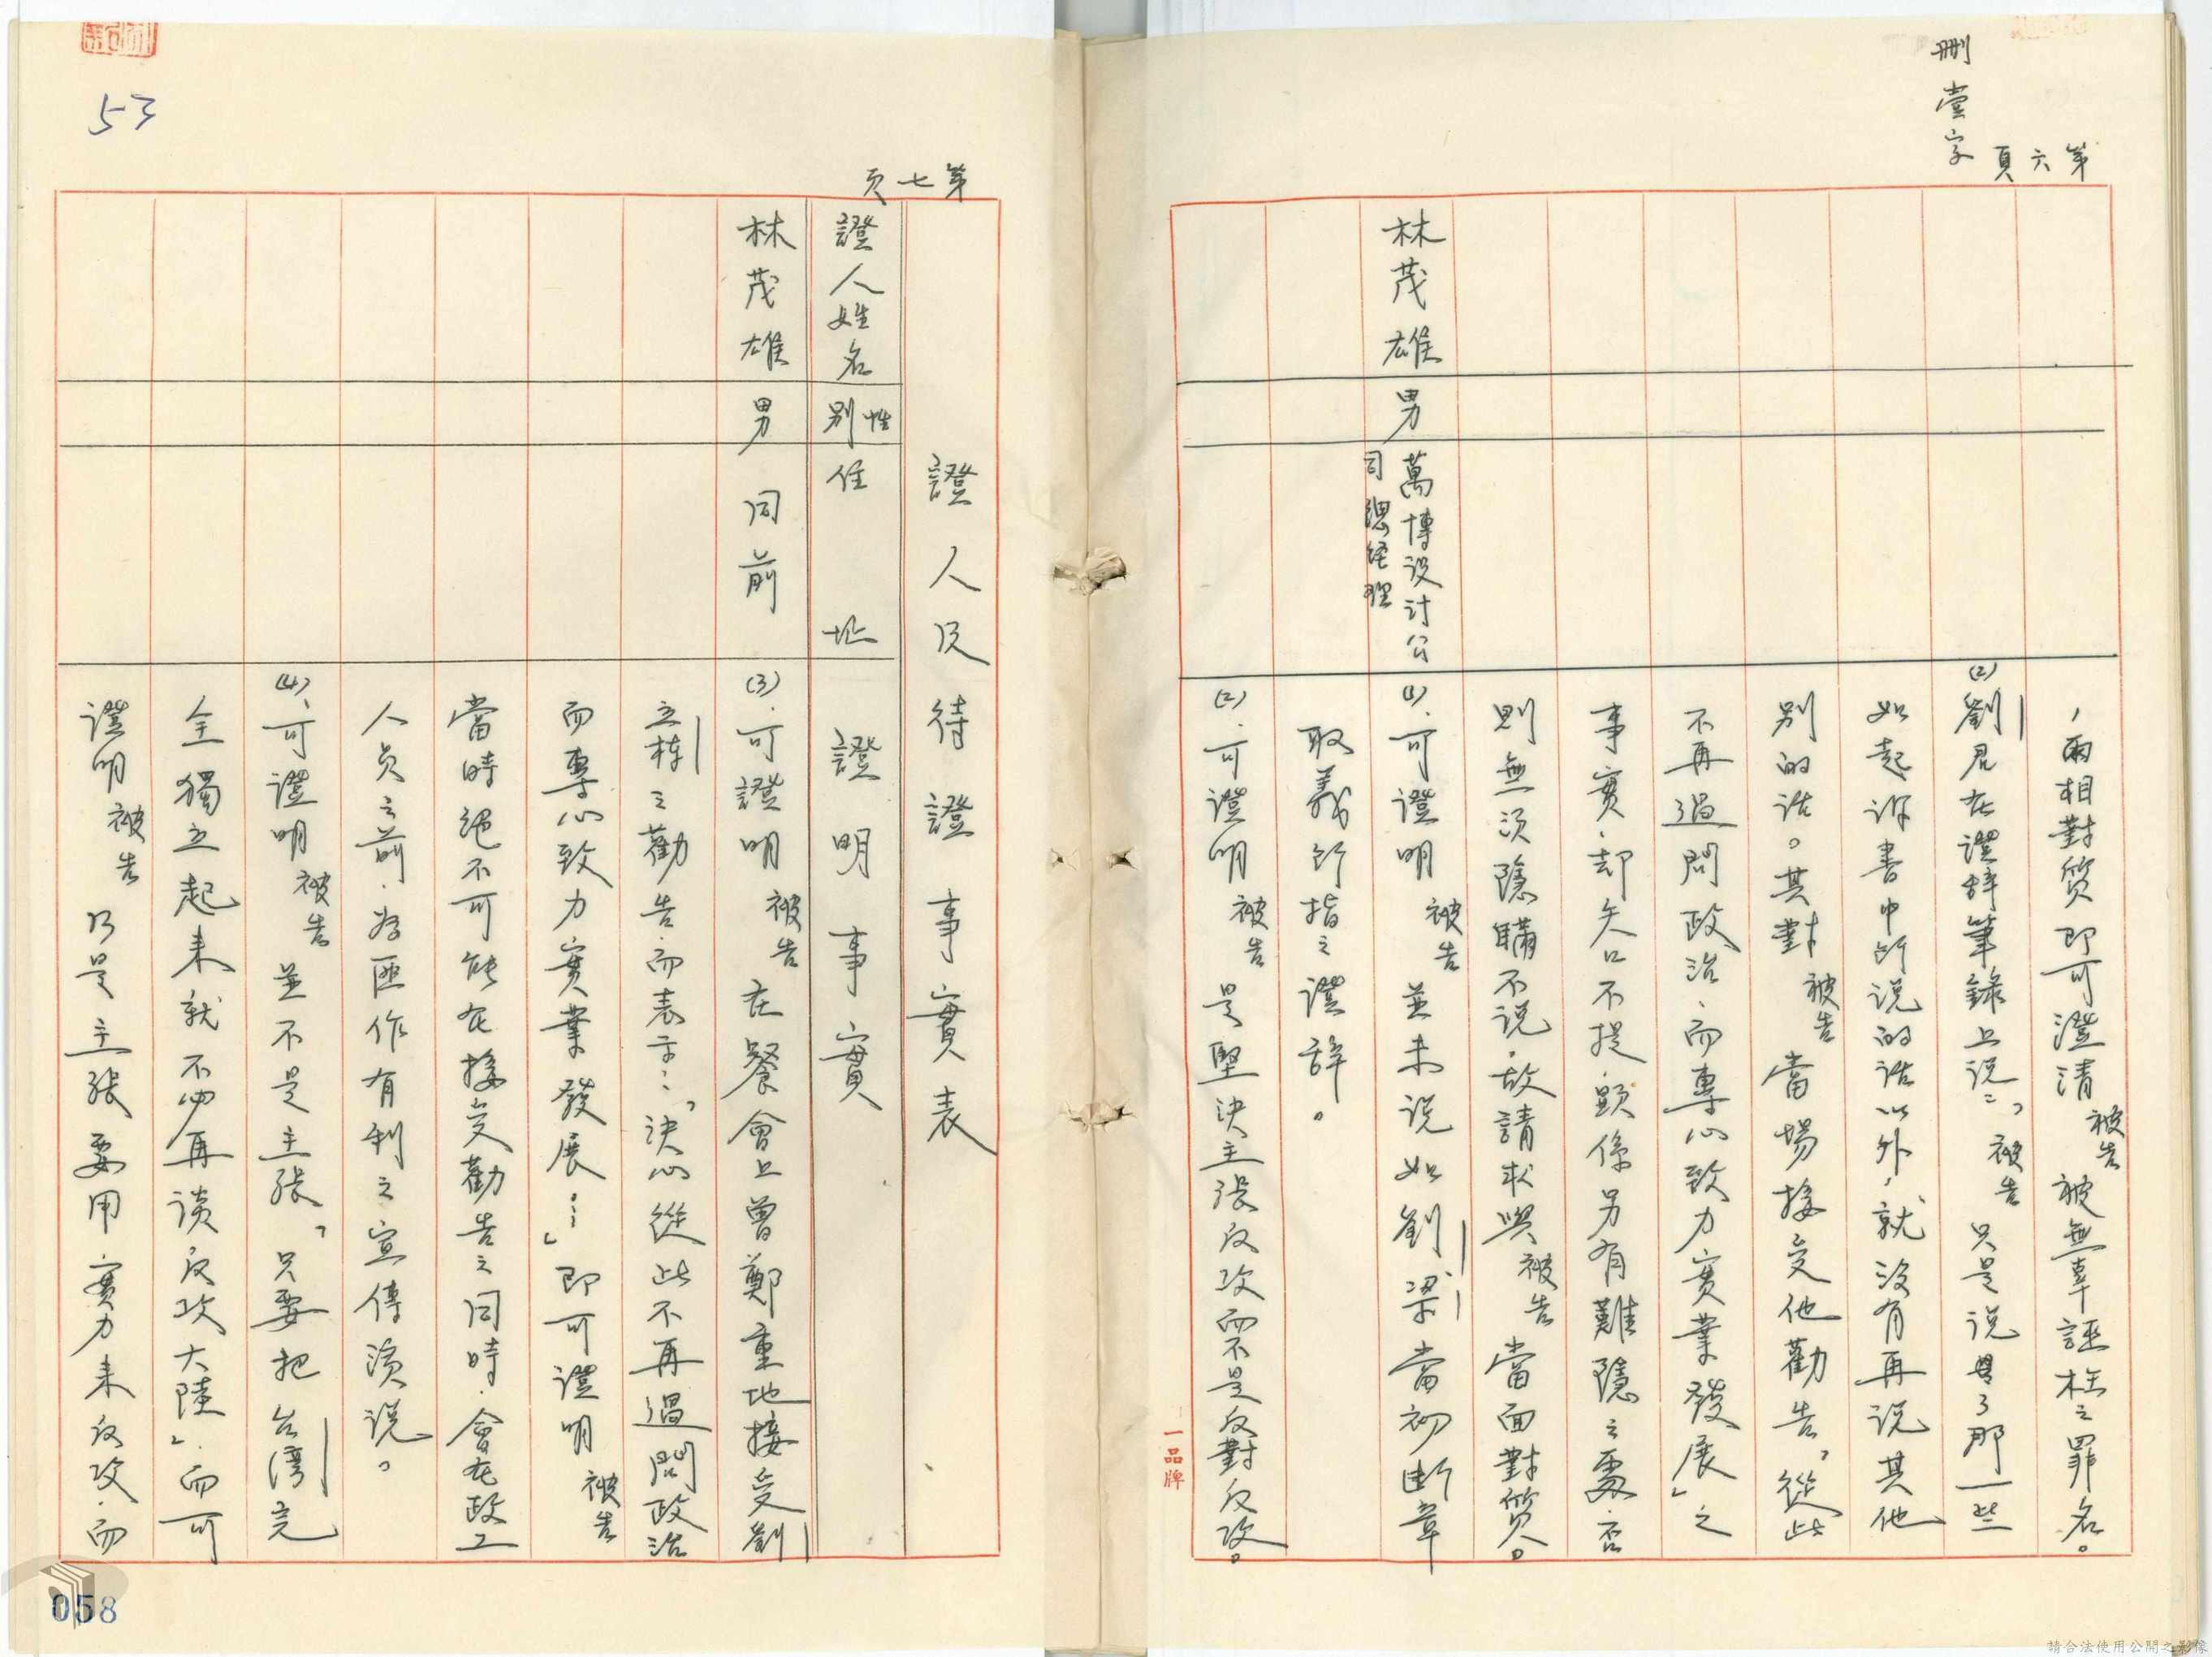 刪當字
第六頁
，兩相對質即可澄清被告被無辜誣枉之罪名。
(2)劉君在證辞筆錄上说：「被告只是说與了那一些
如起诉書中所说的话以外，就沒有再说其他
别的话。其對被告當場接受他勸告「從此
不再過問政治、而專心致力實業發展」之
事實，却矢口不提，顕係另有難隱之處，否
則無須隱瞞不说，故請求與被告當面對質。
林茂雄
男
萬博设计公
司總经理
(1)、可證明被告並未说如劉、梁當初断章
取義所指之證辞。
(2)、可證明被告是堅決主張反攻而不是反對反攻。
一品牌
第七页
證人及待證事實表
證人姓名
性别
住址
證明事實
林茂雄
男
同前
(3)、可證明被告在餐會上曾鄭重地接受劉
立栋之勸告，而表示：「決心從此不再過問政治
而專心致力實業發展……」即可證明被告
當時絕不可能在接受勸告之同時，會在政工
人员之前，為匪作有利之宣傳演说。
(4)、可證明被告並不是主張「只要把台灣完
全獨立起来就不必再談反攻大陸」，而可
證明被告乃是主張要用實力来反攻，而
53
058
請合法使用公開之影像